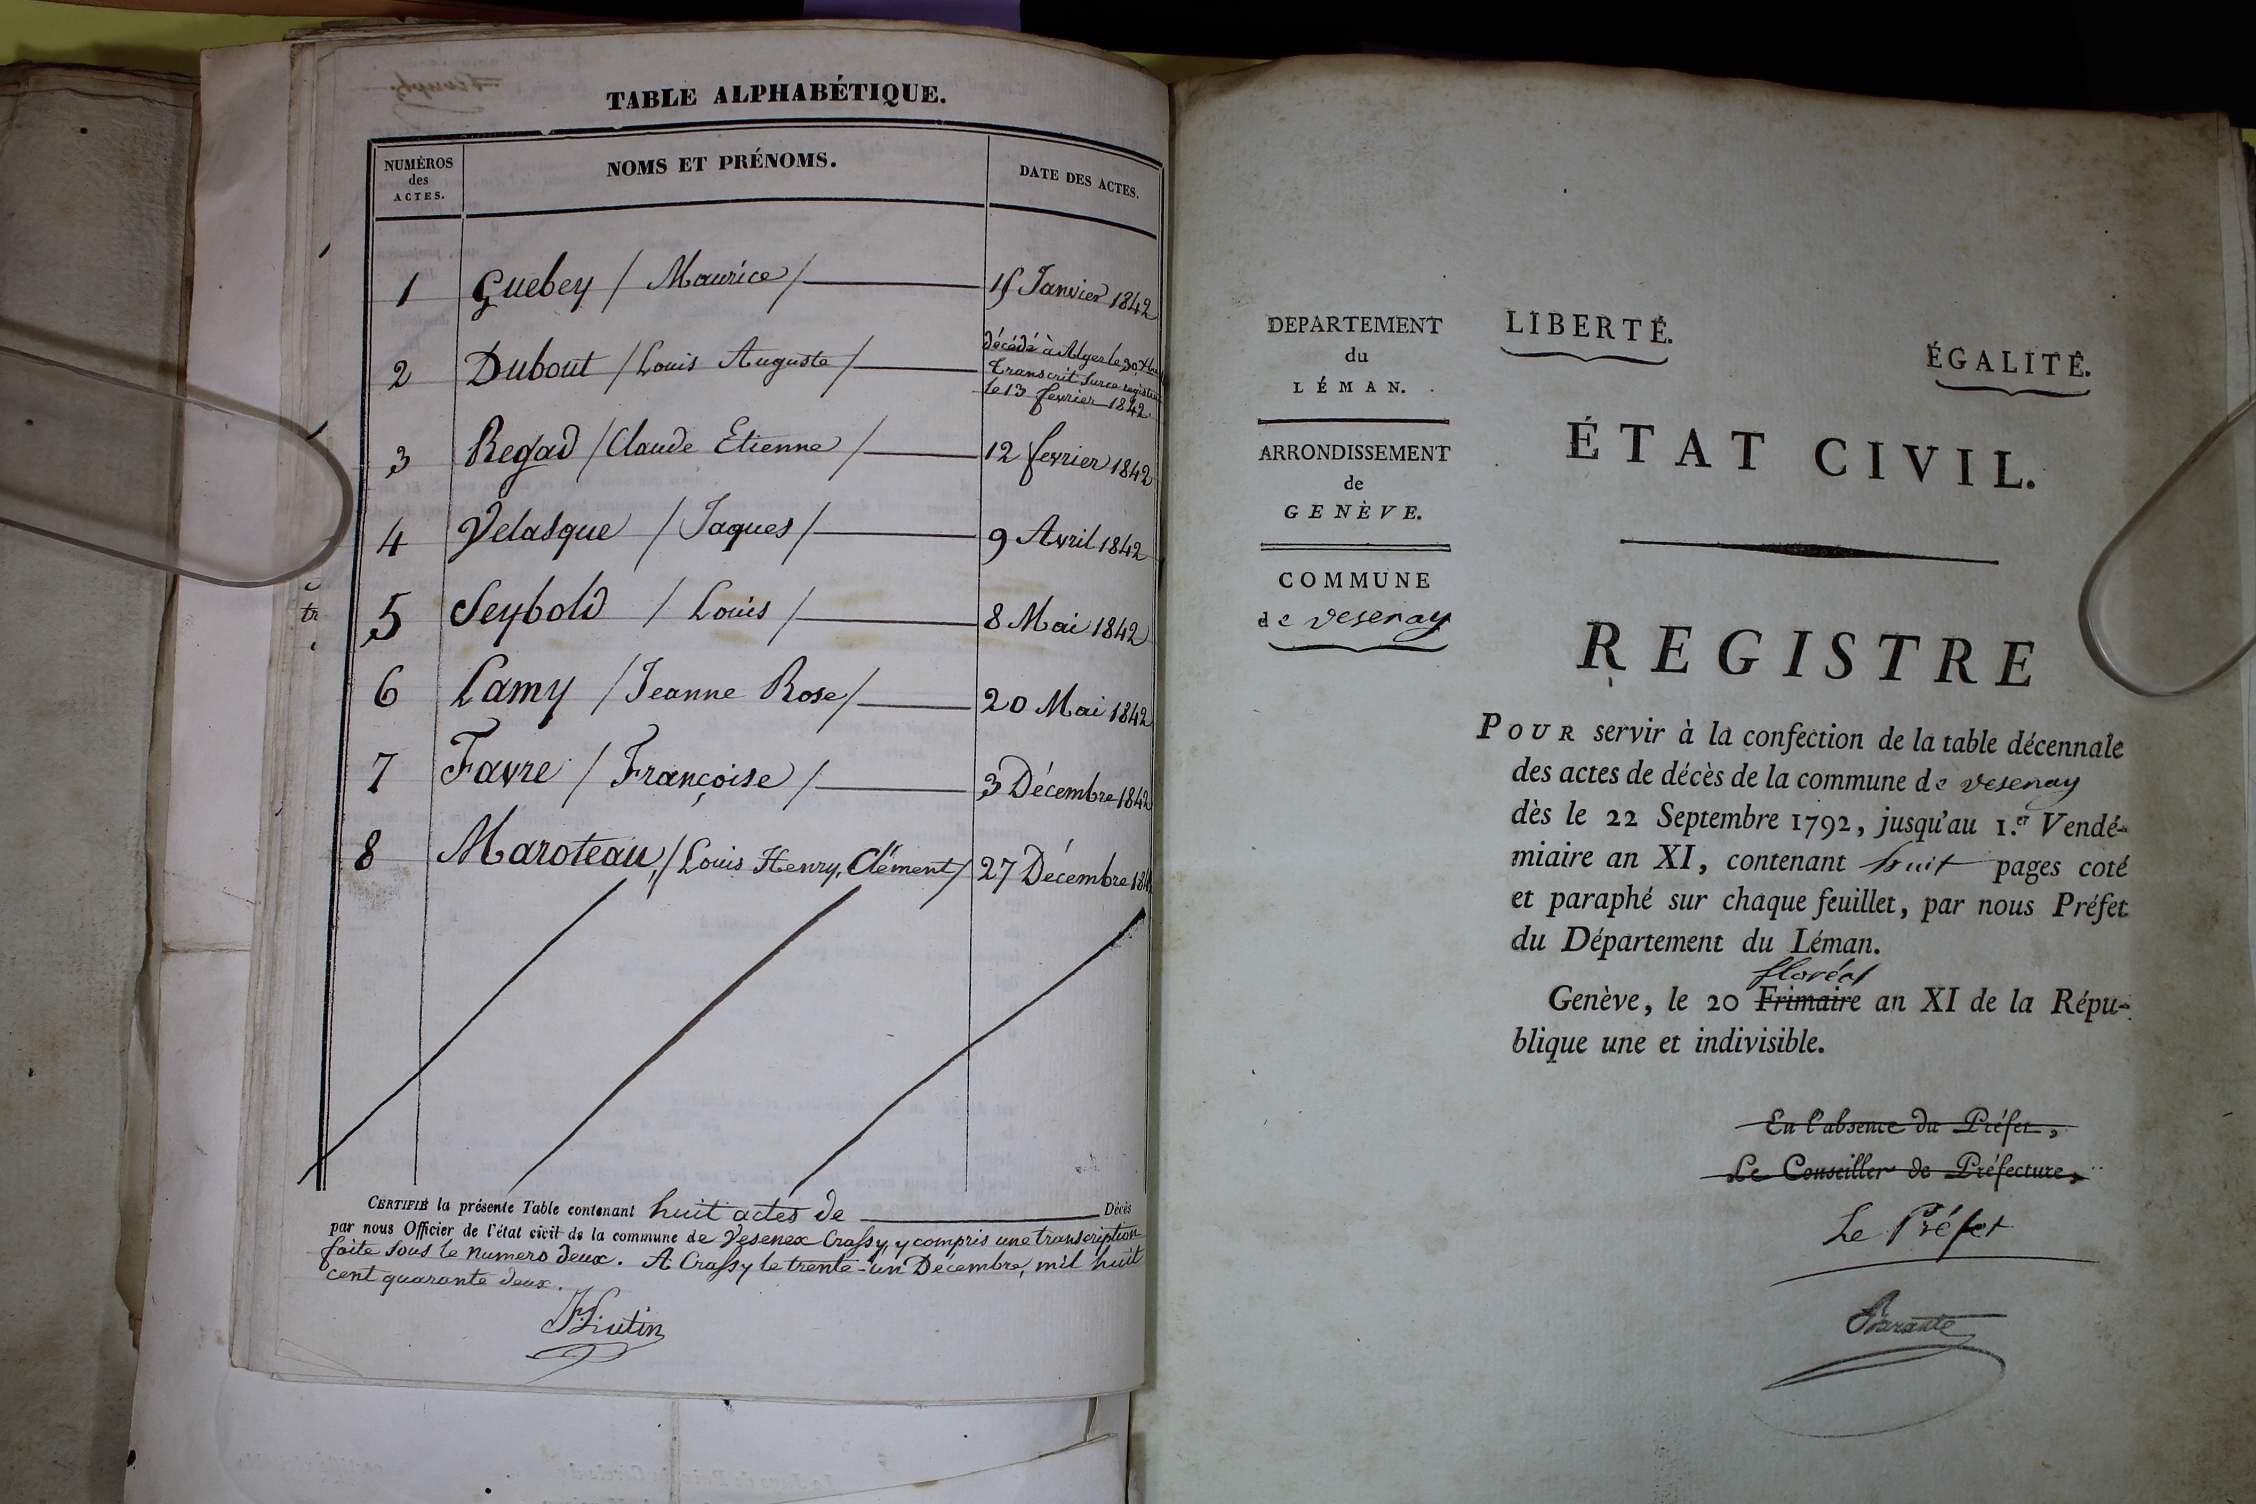 TABLE ALPHABÉTIQUE.
NUMÉROS
des
ACTES.
NOMS ET PRÉNOMS.
DATE DES ACTES.
1 Guebey / Maurice / 15 Janvier 1842
2 Dubout / Louis Auguste / décédé à Alger le 30
Transcrit sur ce registre
le 13 fevrier 1842
3 Regad / Claude Etienne / 12 fevrier 1842
4 Velasque / Jaques / 9 Avril 1842
5 Seybold / Louis / 8 Mai 1842
6 Lamy / Jeanne Rose / 20 Mai 1842
7 Favre / Françoise / 3 Décembre 1842
8 Maroteau, / Louis Henry, Clément / 27 Décembre 184
CERTIFIÉ la présente Table contenant huit actes de Décès
par nous Officier de l'état civil de la commune de Vesenex Crassy, y compris une transcription
faite sous le numero deux. A Crassy le trente-un Décembre, mil huit
cent quarante deux.
DEPARTEMENT
du
LÉMAN.
ARRONDISSEMENT
de
GENÈVE.
COMMUNE
de vesenay
LIBERTÉ.
ÉGALITÉ.
ÉTAT CIVIL.
REGISTRE
POUR servir à la confection de la table décennale
des actes de décès de la commune de vesenay
dès le 22 Septembre 1792, jusqu'au 1.er Vendé-
miaire an XI, contenant huit pages coté
et paraphé sur chaque feuillet, par nous Préfet
du Département du Léman.
floréal
Genève, le 20 Frimaire an XI de la Répu-
blique une et indivisible.
En l'absence du Préfet,
Le Conseiller de Préfecture,
Le Préfet
Barante